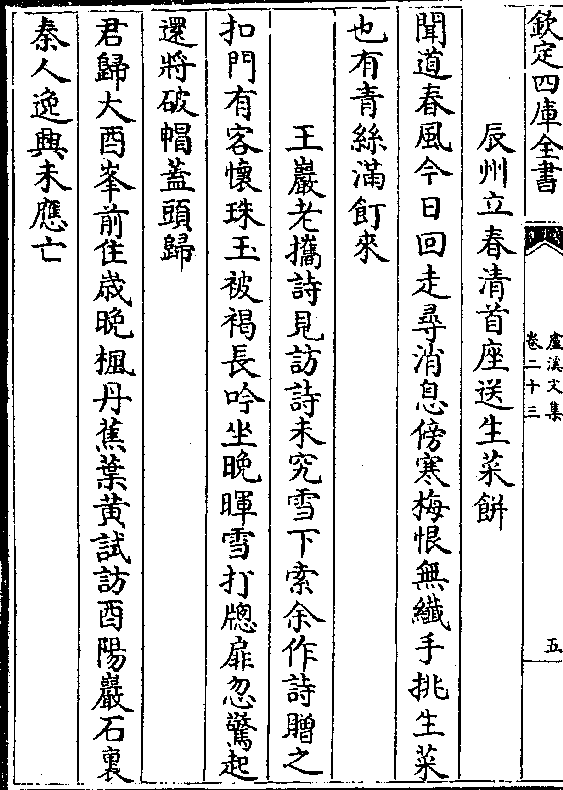 欽定四庫全書
盧溪文集
卷二十三
五
辰州立春清首座送生菜餅
聞道春風今日回走尋消息傍寒梅恨無纖手挑生菜
也有青絲滿飣來
王巖老攜詩見訪詩未究雪下索余作詩贈之
扣門有客懷珠玉被褐長吟坐晚暉雪打牎扉忽驚起
還將破帽蓋頭歸
君歸大酉峯前住歲晚楓丹蕉葉黄試訪酉陽巖石裏
秦人逸興未應亡